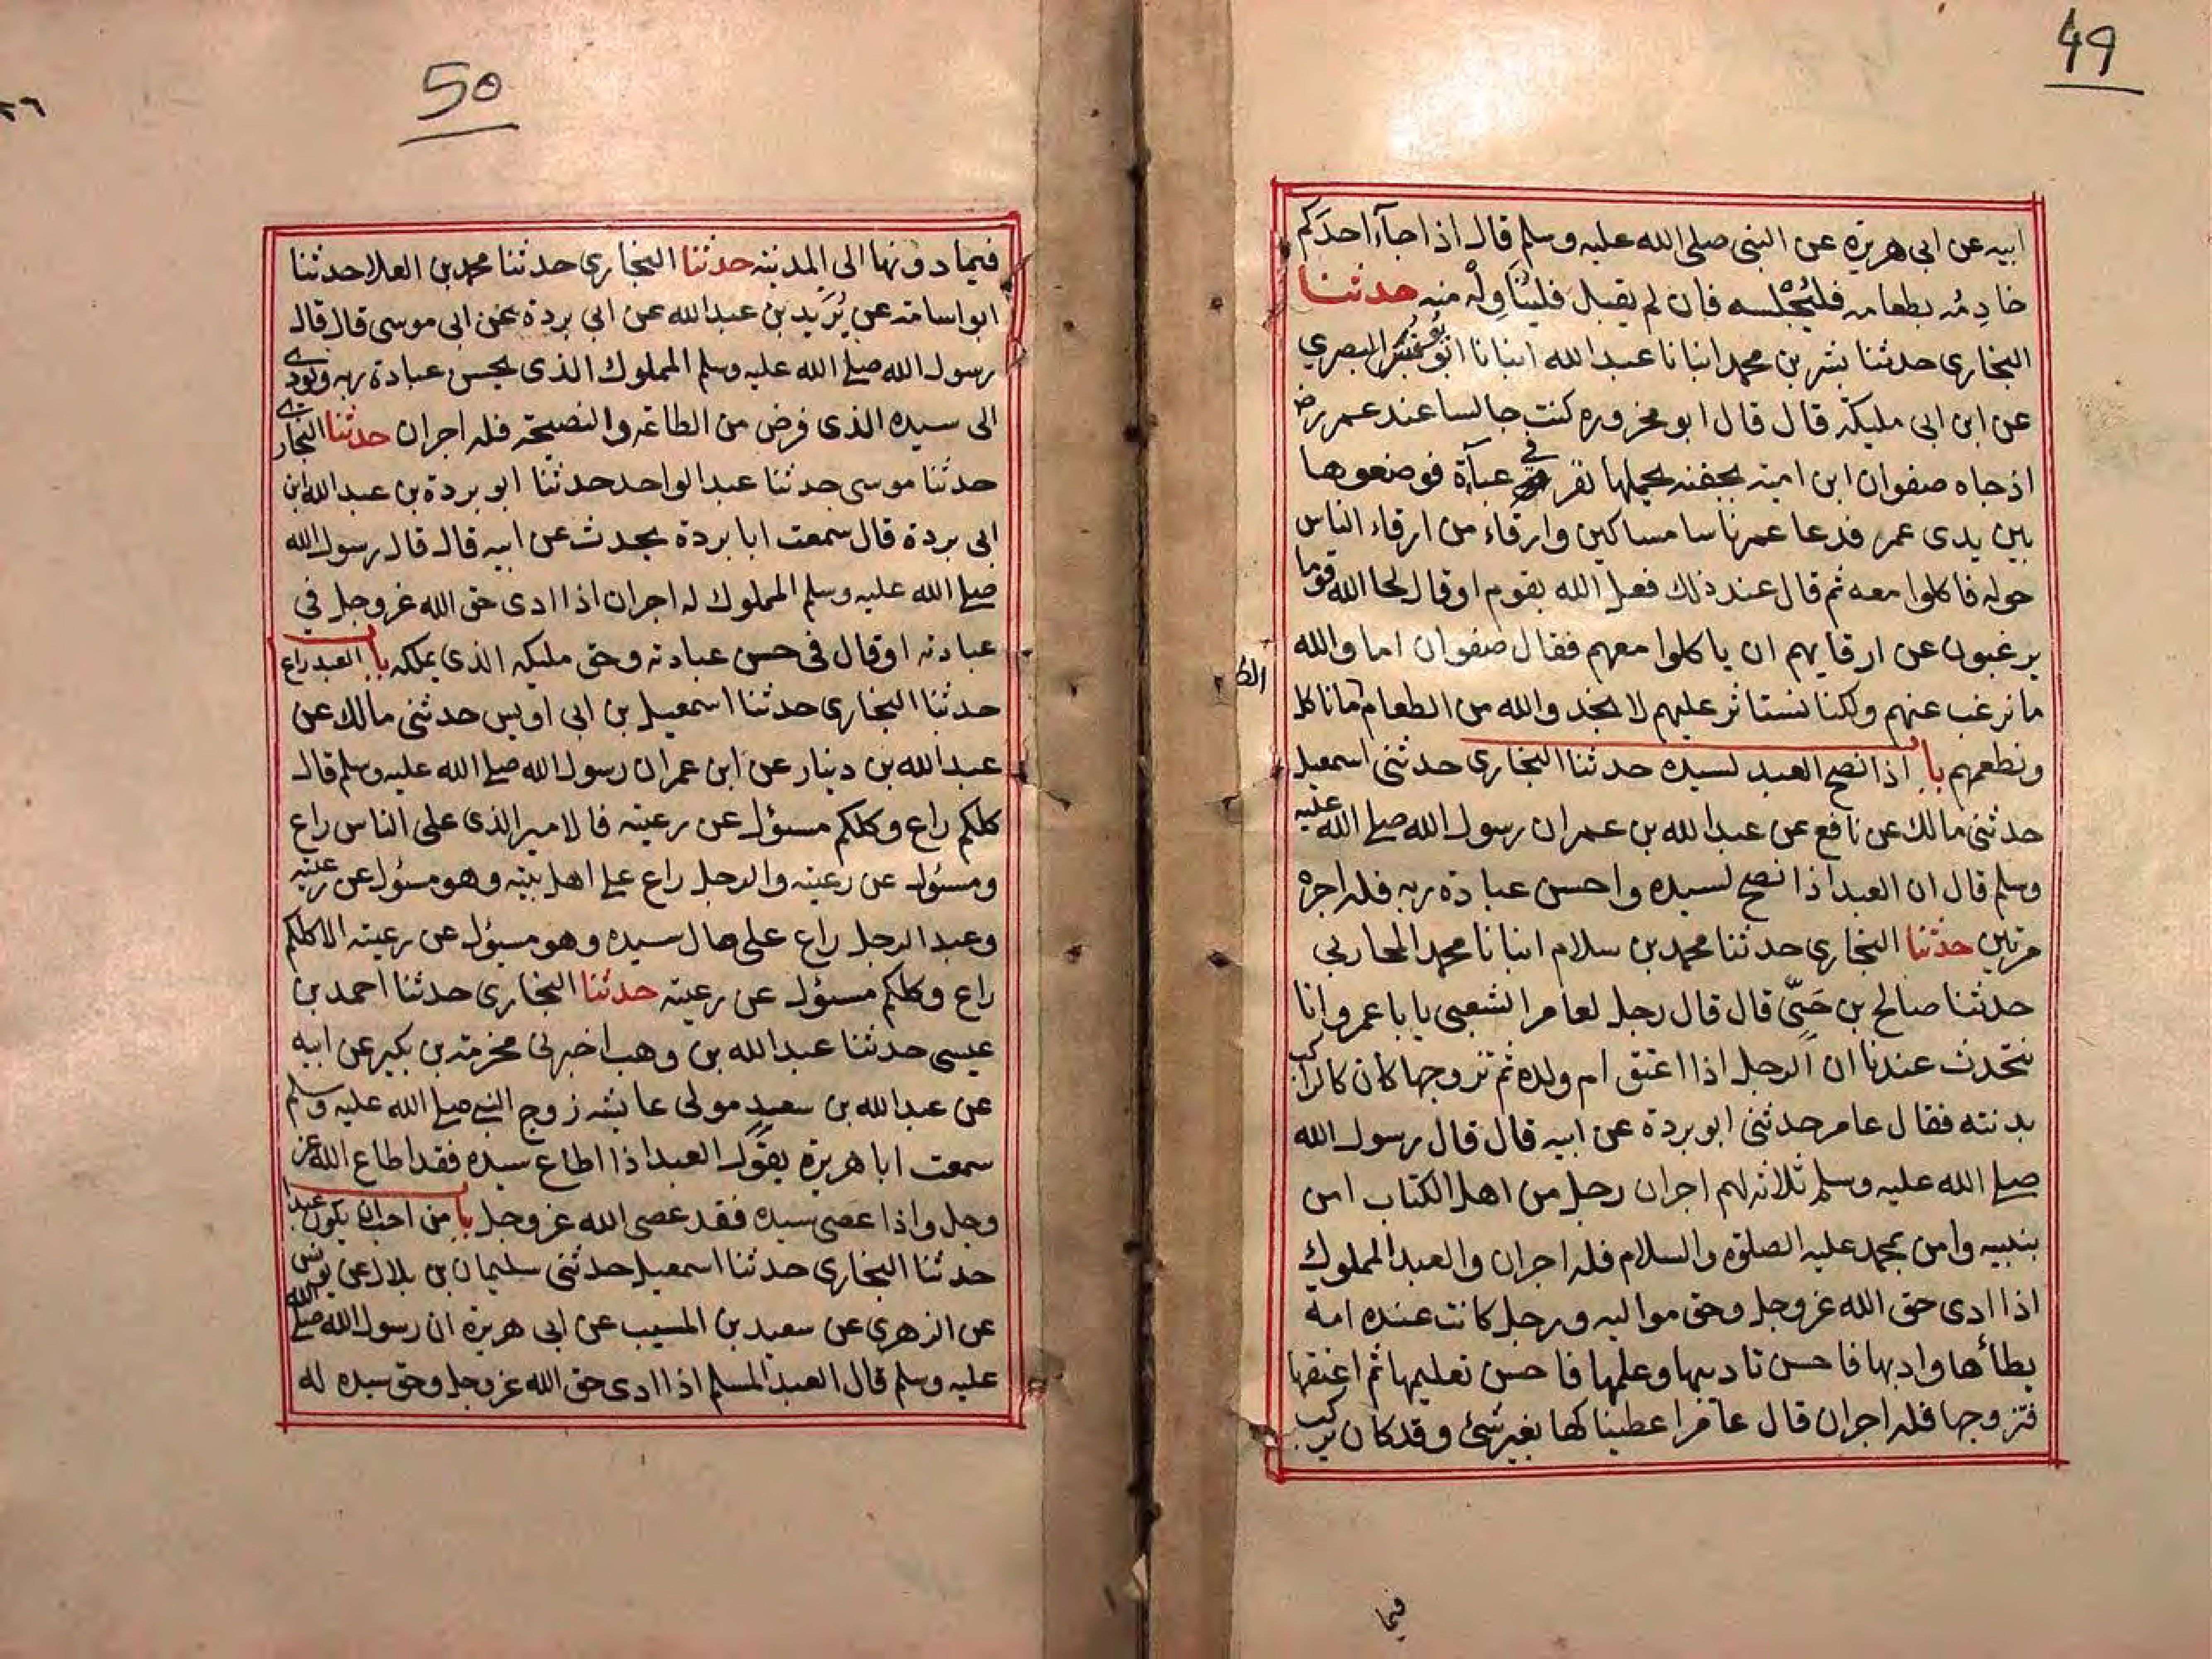 49
ابيه عن ابى هريرة عن النبى صلى الله عليه وسلم قال اذا جآء احدكم
خادِمُه بطعامه فليُجْلسه فان لم يقبل فليُنَاوِلْه منه حدثنا
البخارى حدثنا بشر بن محمد انبانا عبد الله انبانا ابو البصري
عن ابن ابى مليكة قال قال ابو محزوره كنت جالسا عند عمر رض
اذ جاه صفوان ابن اميه بجفنه يحملها نفر في عبآة فوضعوها
بين يدى عمر فدعا عمر ناسا مساكين وارقاء من ارقاء الناس
حوله فاكلوا معه ثم قال عند ذلك فعل الله بقوم او قال لحا الله قوما
يرغبون عن ارقايهم ان ياكلوا معهم فقال صفوان اما والله
ما نرغب عنهم ولكنا نستاثر عليهم لا نجد والله من الطعام ما ناكل
الط
ونطعمهم با اذا نصح العبد لسيده حدثنا البخارى حدثنى اسمعيل
حدثنى مالك عن نافع عن عبد الله بن عمر ان رسول الله صلى الله عليه
وسلم قال ان العبد اذا نصح لسيده واحسن عبادة ربه فله اجره
مرتين حدثنا البخارى حدثنا محمد بن سلام انبانا محمد المحاربى
حدثنا صالح بن حَىّ قال قال رجل لعامر الشعبى يا با عمرو انا
نتحدث عندنا ان الرجل اذا اعتق ام ولده ثم تزوجها كان كالراكب
بدنته فقال عامر حدثنى ابو بردة عن ابيه قال قال رسول الله
صلى الله عليه وسلم ثلاثه لهم اجران رجل من اهل الكتاب امن
بنبيه وامن بمحمد عليه الصلوة والسلام فله اجران والعبد المملوك
اذا ادى حق الله عز وجل وحق مواليه ورجل كانت عنده امة
يطأها وادبها فاحسن تاديبها وعلمها فاحسن تعليمها ثم اعتقها
فتزوجها فله اجران قال عامر اعطيناكها بغير شئ وقد كان يركب
فيما
50
٢٦
فيما دونها الى المدينه حدثنا البخارى حدثنا محمد بن العلا حدثنا
ابو اسامة عن بُرَيد بن عبد الله عن ابى بردة عن ابى موسى قال قال
رسول الله صلى الله عليه وسلم المملوك الذى يحسن عبادة ربه ويودى
الى سيده الذى فرض من الطاعه والنصيحة فله اجران حدثنا البخارى
حدثنا موسى حدثنا عبد الواحد حدثنا ابو بردة بن عبد الله ابن
ابى بردة قال سمعت ابا بردة يحدث عن ابيه قال قال رسول الله
صلى الله عليه وسلم المملوك له اجران اذا ادى حق الله عز وجل في
عبادته او قال فى حسن عبادته وحق مليكه الذى يملكه با العبد راع
حدثنا البخارى حدثنا اسمعيل بن ابى اويس حدثنى مالك عن
عبد الله بن دينار عن ابن عمر ان رسول الله صلى الله عليه وسلم قال
كلكم راع وكلكم مسؤل عن رعيته فالامير الذى على الناس راع
ومسؤل عن رعيته والرجل راع على اهل بيته وهو مسؤل عن رعيته
وعبد الرجل راع على مال سيده وهو مسؤل عن رعيته الا كلكم
راع وكلكم مسؤل عن رعيته حدثنا البخارى حدثنا احمد بن
عيسى حدثنا عبد الله بن وهب اخبرنى مخرمة بن بكير عن ابيه
عن عبد الله بن سعيد مولى عايشه زوج النبى صلى الله عليه وسلم
سمعت ابا هريرة يقول العبد اذا اطاع سيده فقد اطاع الله عز
وجل واذا عصى سيده فقد عصى الله عز وجل با من احب ان يكون عبدا
حدثنا البخارى حدثنا اسمعيل حدثنى سليمان بن بلال عن يونس
عن الزهرى عن سعيد بن المسيب عن ابى هريرة ان رسول الله صلى الله
عليه وسلم قال العبد المسلم اذا ادى حق الله عز وجل وحق سيده له